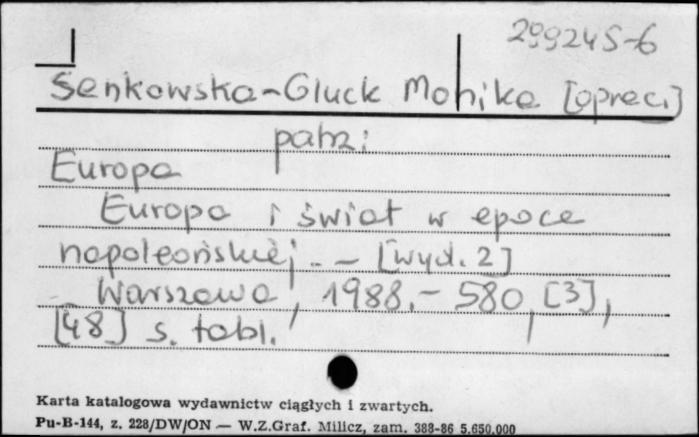 299245-6
Senkowska-Gluck Monika [oprac.]
patrz:
Europa
Europa i świat w epoce
napoleońskiej. - [wyd. 2]
Warszawa, 1988. - 580, [3],
[48] s. tabl.
Karta katalogowa wydawnictw ciągłych i zwartych.
Pu-B-144, z. 228/DW/ON — W.Z.Graf. Milicz, zam. 388-86 5.650.000